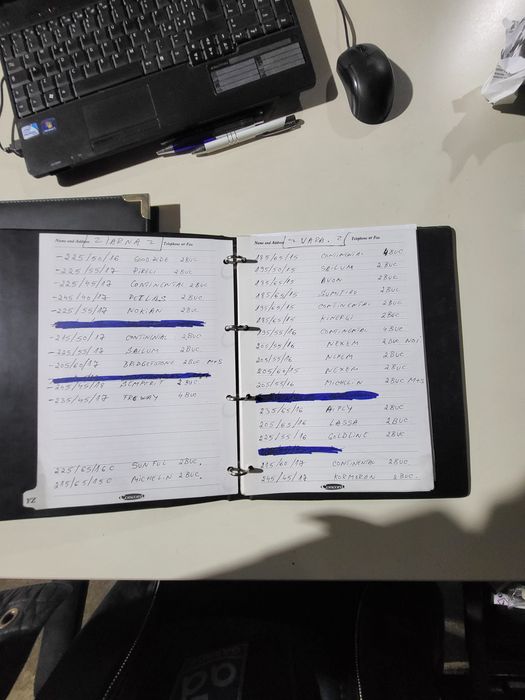 Name and Address
IARNA
Telephone or Fax
- 225/50/16 GOODRIDE 2 BUC
- 225/55/17 PIRELI 2 BUC
- 225/45/17 CONTINENTAL 2 BUC
- 245/40/17 PETLAS 2 BUC
- 225/55/17 NOKIAN 2 BUC
- 215/50/17 CONTINENAL 2 BUC
- 225/55/17 SAILUM 2 BUC
- 205/60/17 BRIDGESTONE 2 BUC M+S
SEMPERIT 2 BUC
- 235/45/17 TREWAY 4 BUC
225/65/16 C SUN FUL 2 BUC.
215/65/15 C MICHELIN 2 BUC.
YZ
Name and Address
VARA
Telephone or Fax
185/65/15 CONTINENTAL 4 BUC
195/50/15 SAILUM 2 BUC
195/65/15 AVON 2 BUC
185/65/15 SUMITIRO 2 BUC
195/65/15 CONTINENTAL 2 BUC
195/65/15 KINERGI 2 BUC
195/55/16 CONTINENTAL 4 BUC
205/55/16 NEXEN NOI
205/55/16 2 BUC
205/60/15 NEXEN 2 BUC
205/55/16 MICHELIN 2 BUC M+S
235/65/16 APLY 2 BUC
205/65/16 LASSA 2 BUC
225/55/16 GOLDLINE 2 BUC
215/60/17 CONTINENTAL 2 BUC
245/45/17 KORMORAN 2 BUC